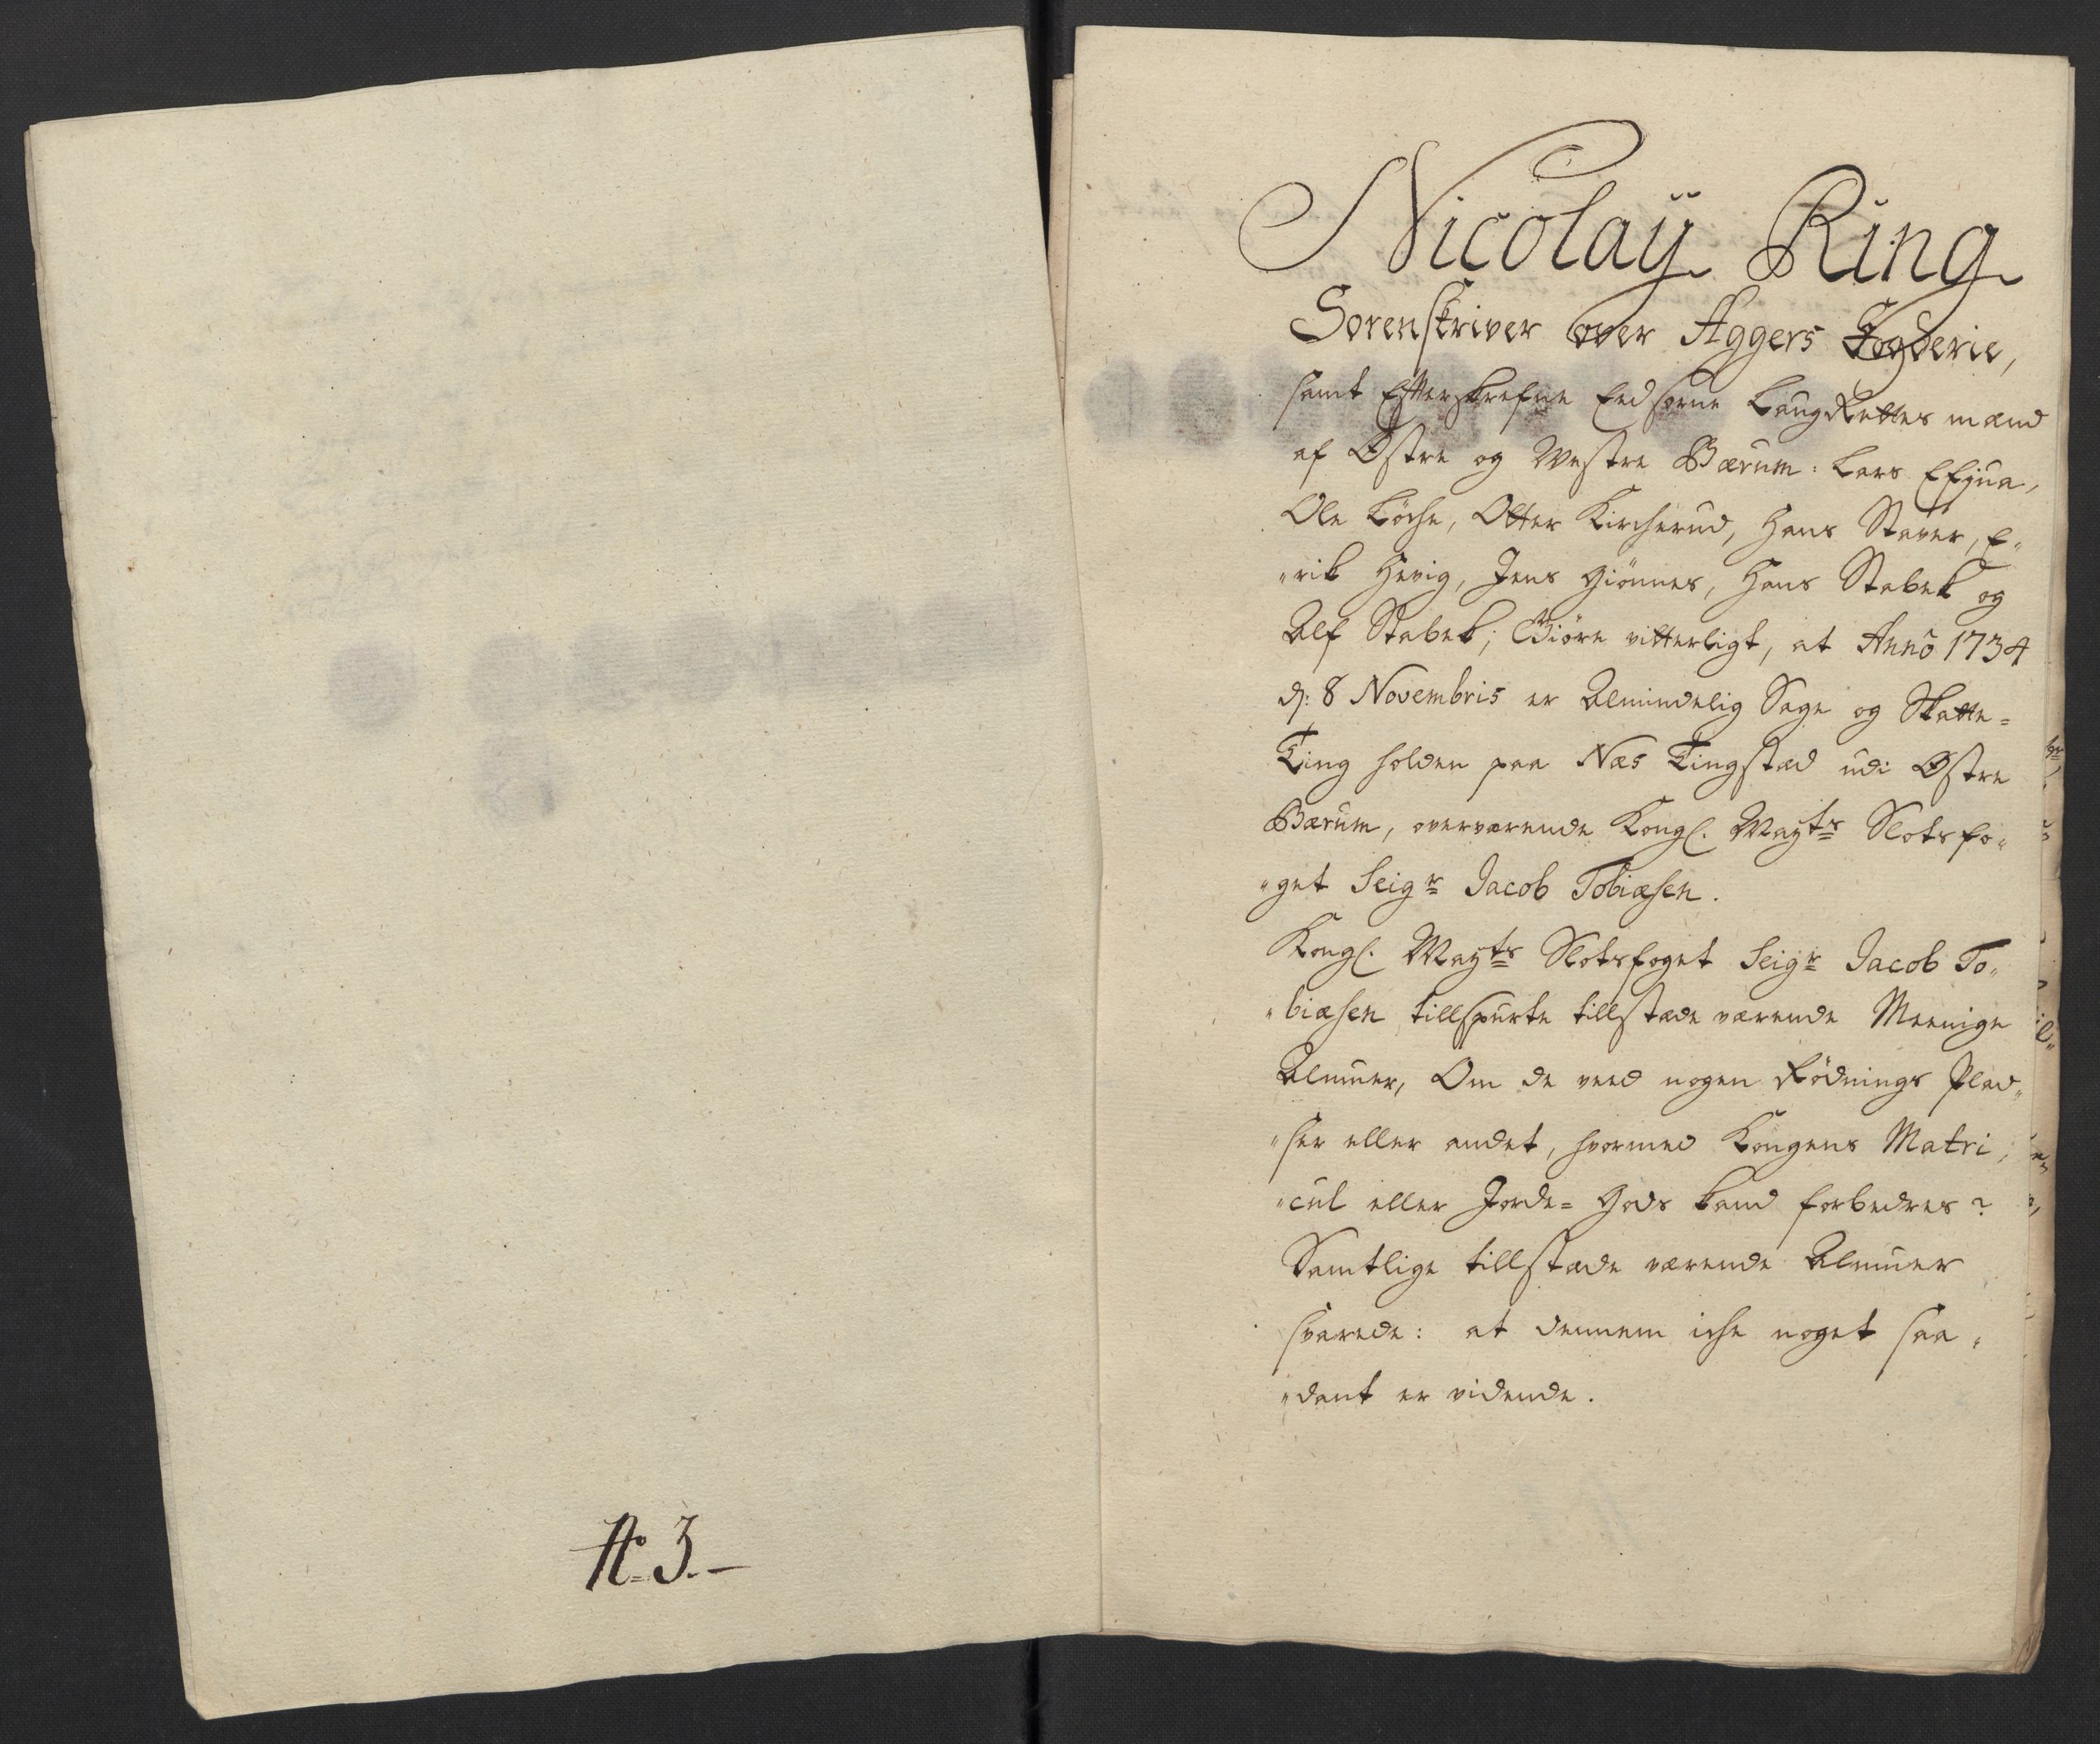 N: 3.-
Nicolaÿ Ring
Sorenskriver over Aggers Fogderie,
samt Efterskrefne Eedsorne LaugRettes mænd
af Østre og Westre Bærum: Lars Efjua,
Ole Löche, Otter Kircherud, Hans Staver, E„
„rik Hevig, Jens Giönnes, Hans Stabek og
Alf Stabek; Giöre vitterligt, at Anno 1734
d: 8 Novembris er Almindelig Sage og Skatte=
Ting holden paa Næs Tingstæd udi Østre
Bærum, overværende Kongl. Mayts Slotsfo„
„get Seigr Jacob Tobiæsen.
Kongl. Mayts Slotsfoget Seigr Jacob To„
„biæsen tillspurte tillstæde værende Meenige
Almuer, Om de veed nogen Rödnings Plad„
„ser eller andet, hvormed Kongens Matri„
„cul eller Jorde= Gods kand forbedres?
Samtlige tillstæde værende Almuer
svarede: at dennem iche noget saa„
„dant er vidende.